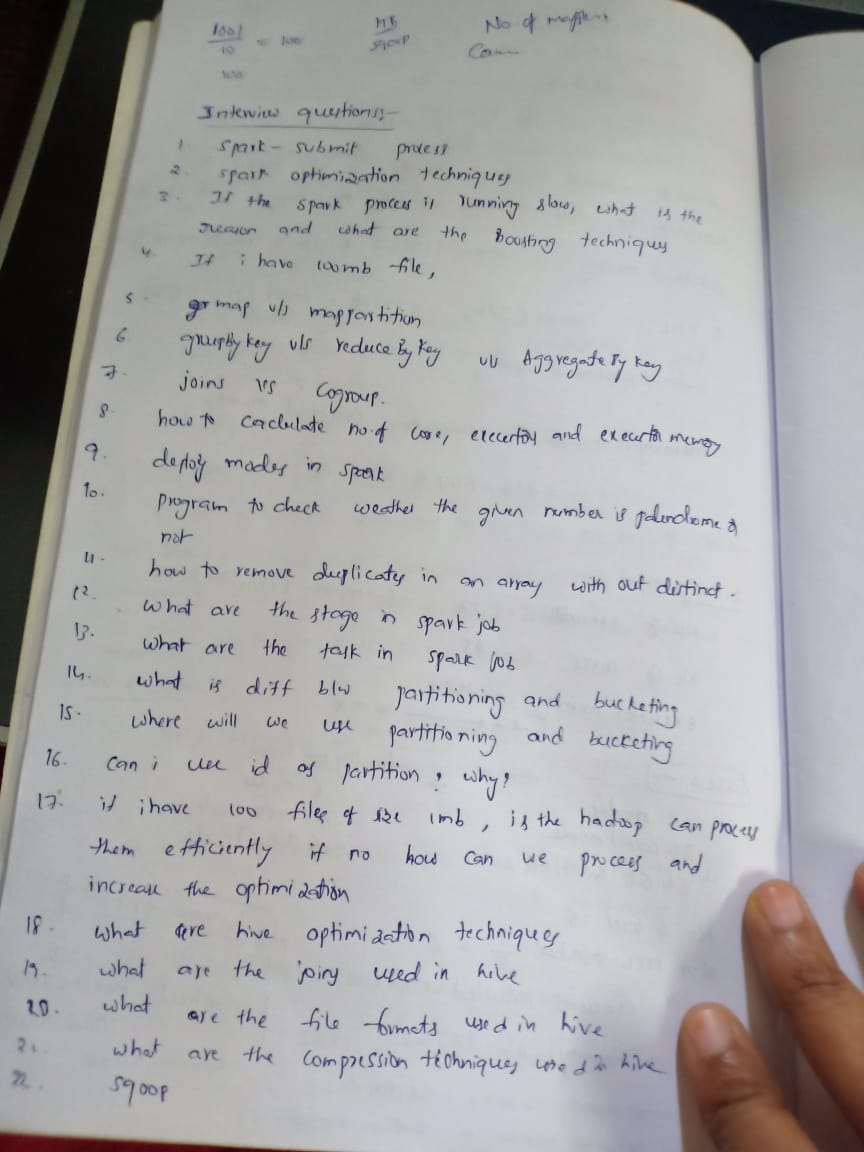 1001/10 = 100
MB/sqoop
No of
100
Interview questions:-
1 Spark - submit process
2 spark optimization techniques
3. If the spark process is running slow, what is the
reason and what are the Boosting techniques
4 If i have 100mb file,
5. map v/s mappartition
6. groupBykey v/s reduceBykey v/s AggregateBykey
7. joins vs Cogroup.
8. how to caclulate no.of core, executor and executor memory
9. deploy modes in spark
10. program to check weather the given number is palendrome or
not
11. how to remove duplicates in an array with out distinct.
12. what are the stage in spark job
13. what are the task in spark job
14. what is diff b/w partitioning and bucketing
15. where will we use partitioning and bucketing
16. can i use id as partition? why?
17. if i have 100 files of size 1mb, is the hadoop can process
them efficiently if no how can we process and
increase the optimization
18. what are hive optimization techniques
19. what are the joins used in hive
20. what are the file formats used in hive
21. what are the compression techniques used in hive
22. sqoop